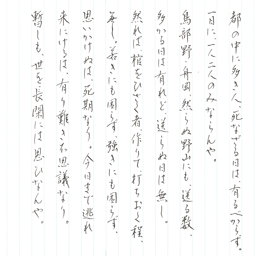 都の中に多き人、死なざる日は有るべからず。
一日に一人二人のみならんや。
鳥部野・舟岡然らぬ野山にも送る数、
多かる日は有れど送らぬ日は無し。
然れば棺をひさぐ者作りて打ちおく程、
無し。若きにも因らず強きにも因らず、
思いかけぬは死期なり。今日まで逃れ
来にけるは有り難き不思議なり。
暫しも世を長閑には思ひなんや。